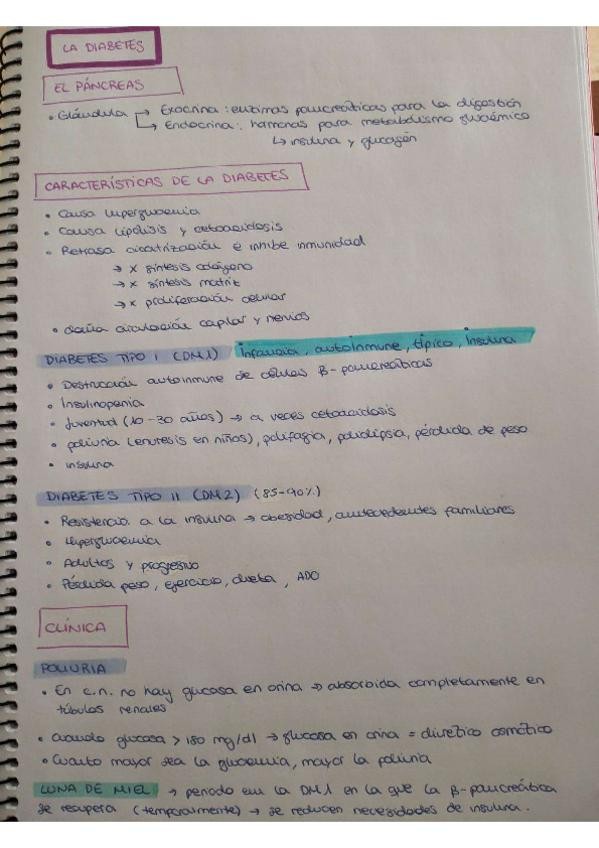 LA DIABETES
EL PÁNCREAS
• Glándula → Exocrina: enzimas pancreáticas para la digestión
→ Endocrina: hormonas para metabolismo glucémico
↳ insulina y glucagón
CARACTERÍSTICAS DE LA DIABETES
• Causa hiperglucemia
• Causa lipólisis y cetoacidosis
• Retrasa cicatrización e inhibe inmunidad
→ x síntesis colágeno
→ x síntesis matriz
→ x proliferación celular
• daña circulación capilar y nervios
DIABETES TIPO I (DM1) Infancia, autoinmune, típico, Insulina
• Destrucción autoinmune de células β-pancreáticas
• Insulinopenia
• Juventud (10-30 años) → a veces cetoacidosis
• poliuria (enuresis en niños), polifagia, polidipsia, pérdida de peso
• insulina
DIABETES TIPO II (DM2) (85-90%)
• Resistencia a la insulina → obesidad, antecedentes familiares
• Hiperglucemia
• Adultos y progresivo
• Pérdida peso, ejercicio, dieta, ADO
CLÍNICA
POLIURIA
• En c.n. no hay glucosa en orina → absorbida completamente en
túbulos renales
• Cuando glucosa > 180 mg/dl → glucosa en orina = diurético osmótico
• Cuanto mayor sea la glucemia, mayor la poliuria
LUNA DE MIEL → periodo en la DM1 en la que la β-pancreática
se recupera (temporalmente) → se reducen necesidades de insulina.